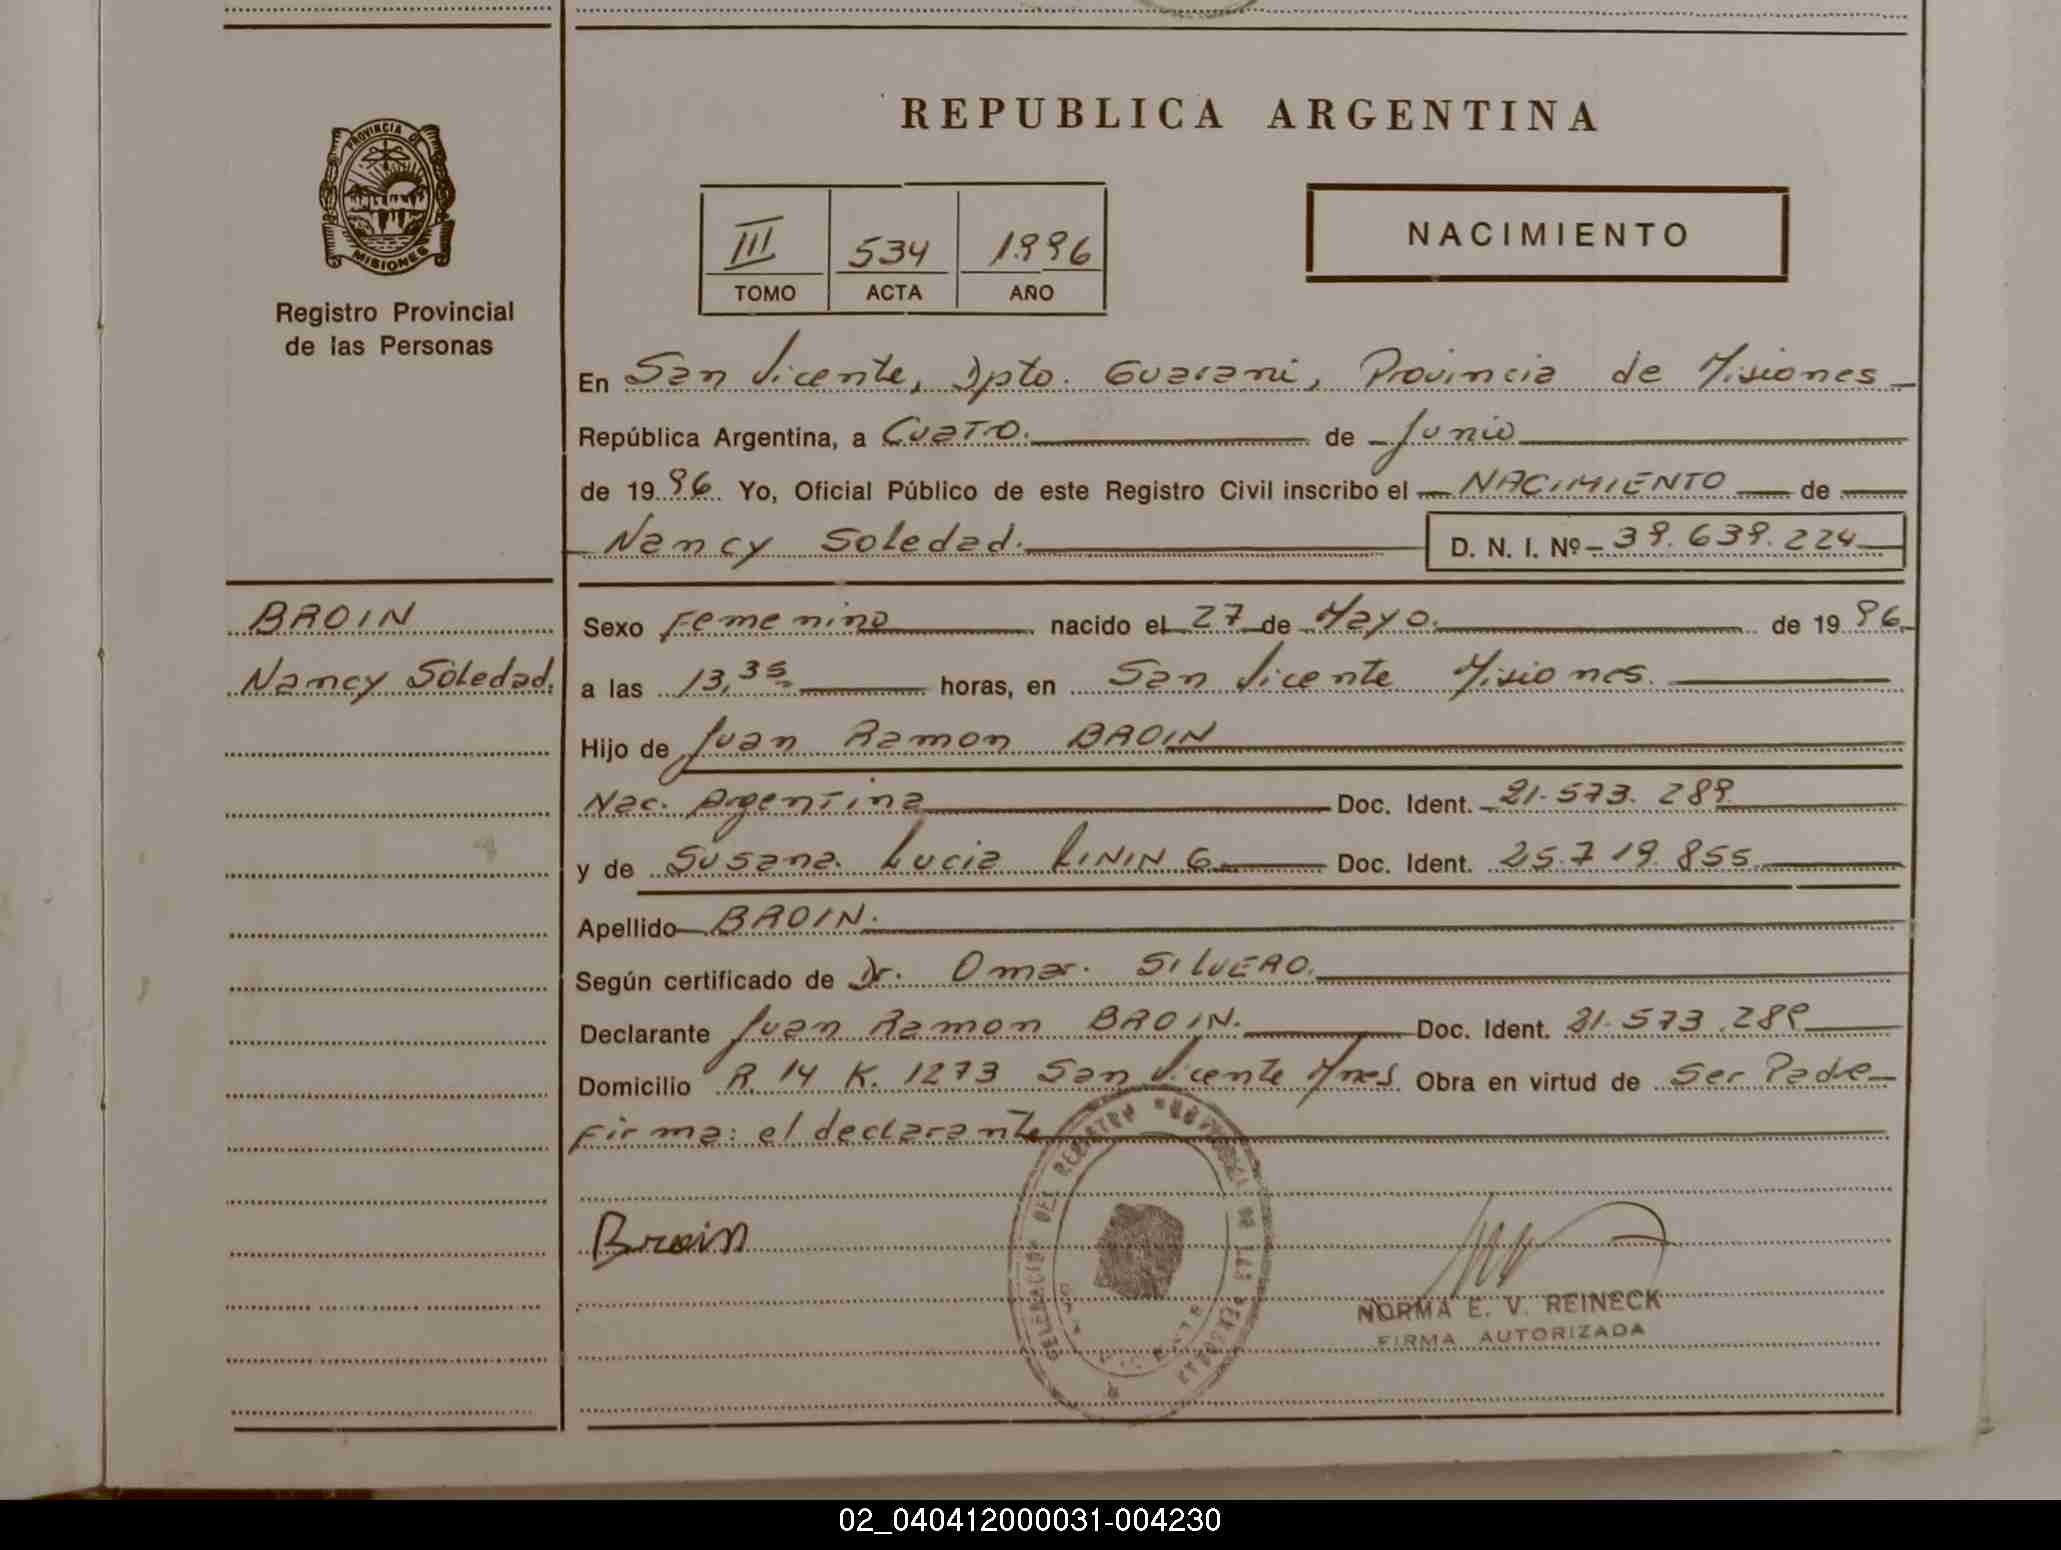 REPUBLICA ARGENTINA
PROVINCIA DE
MISIONES
Registro Provincial
de las Personas
III 534 1996
TOMO ACTA AÑO
NACIMIENTO
En San Vicente, Dpto. Guarani, Provincia de Misiones
República Argentina, a Cuatro. de Junio
de 1996. Yo, Oficial Público de este Registro Civil inscribo el NACIMIENTO de
Nancy Soledad. D. N. I. Nº 39.639.224
BROIN
Nancy Soledad.
Sexo Femenino nacido el 27 de Mayo. de 1996
a las 13,35 horas, en San Vicente Misiones.
Hijo de Juan Ramon BROIN
Nac. Argentina Doc. Ident. 21.573.289
y de Susana Lucia LINING Doc. Ident. 25.719.855
Apellido BROIN.
Según certificado de Dr. Omar SILVERO.
Declarante Juan Ramon BROIN. Doc. Ident. 21.573.289
Domicilio R. 14 K. 1273 San Vicente Mnes. Obra en virtud de ser Padre
Firma: el declarante
Broin
NORMA E. V. REINECK
FIRMA AUTORIZADA
02_040412000031-004230